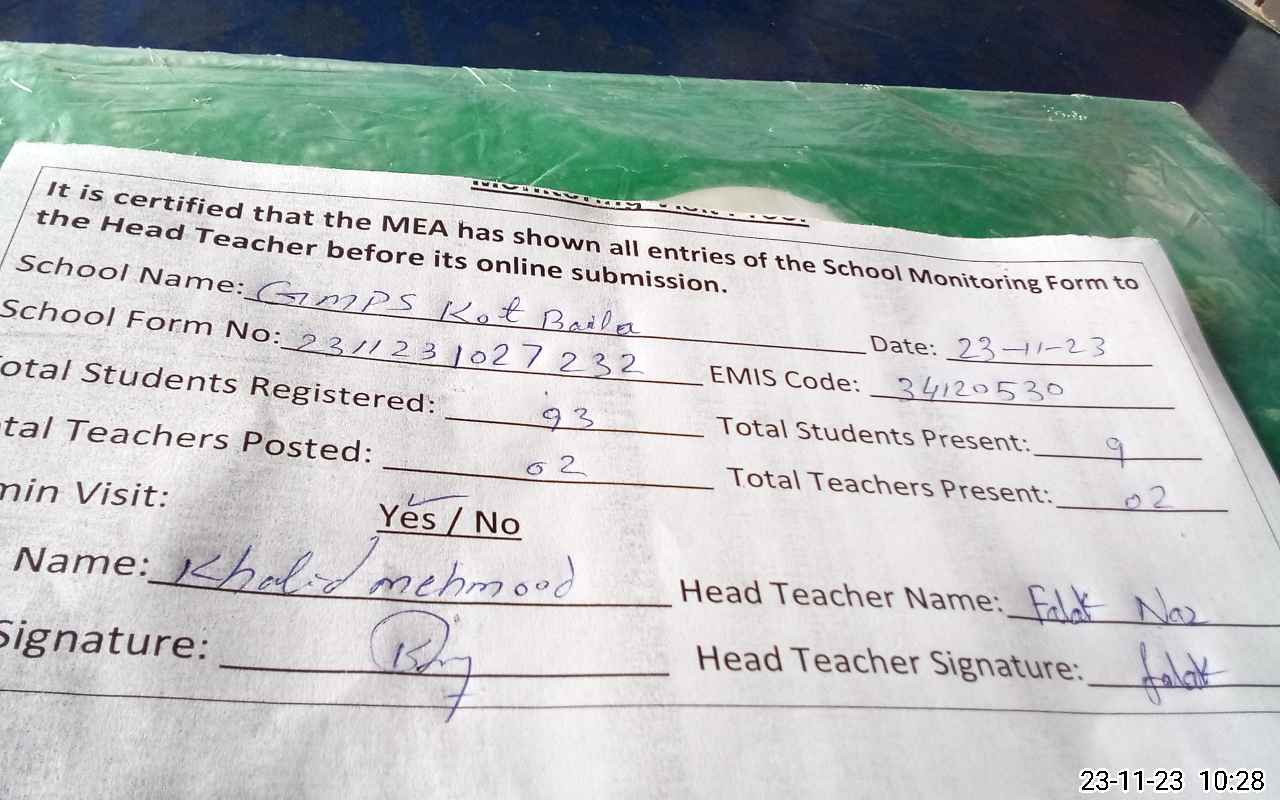 Monitoring Visit Proof
It is certified that the MEA has shown all entries of the School Monitoring Form to
the Head Teacher before its online submission.
School Name: GMPS Kot Baila
Date: 23-11-23
School Form No: 2311231027232
EMIS Code: 34120530
otal Students Registered: 93
Total Students Present: 9
tal Teachers Posted: 02
Total Teachers Present: 02
min Visit: Yes / No
Name: Khalid mehmood
Head Teacher Name: Falak Naz
Signature:
Head Teacher Signature: falak
23-11-23 10:28